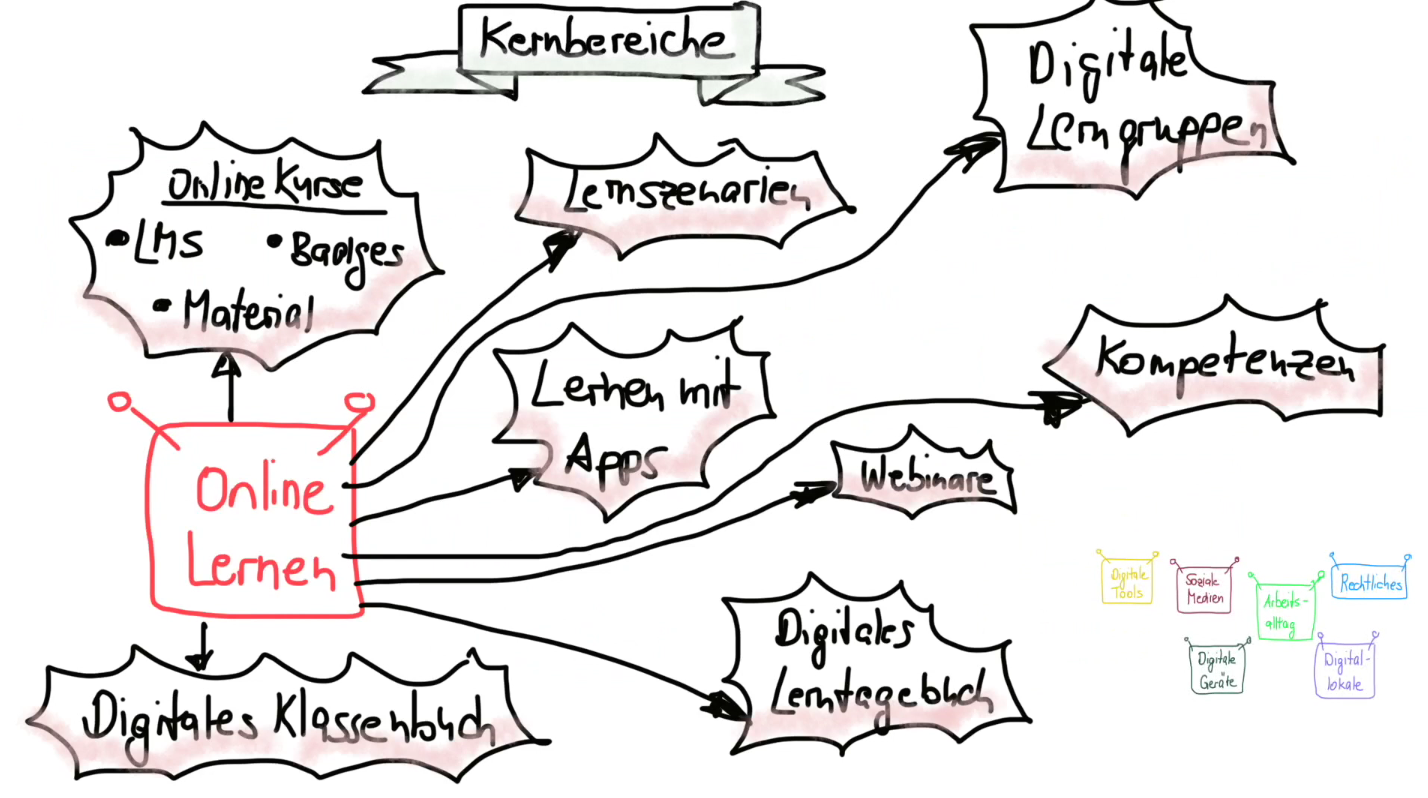 Kernbereiche
Digitale
Lerngruppen
Online Kurse
• LMS • Badges
• Material
Lernszenarien
Lernen mit
Apps
Kompetenzen
Webinare
Online
Lernen
Digitales
Lerntagebuch
Digitales Klassenbuch
Digitale
Tools
Soziale
Medien
Arbeits-
alltag
Rechtliches
Digitale
Geräte
Digital-
lokale